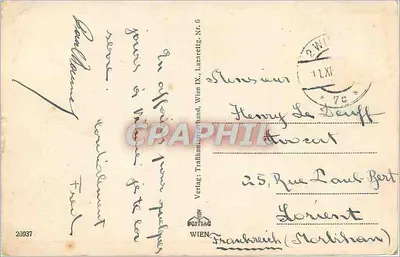 En affaires pour quelques
jours à Vienne, je te
serre
cordialement
Fred
Verlag: Trafikantenverband, Wien IX., Lazarettg. Nr. 6
POSTIAG
WIEN
2 WIEN
1.XI
* 7c *
Monsieur
Henry Le Deuff
Avocat
25, Rue Paul Bert
Lorient
Frankreich (Morbihan)
20937
CPAPHIL